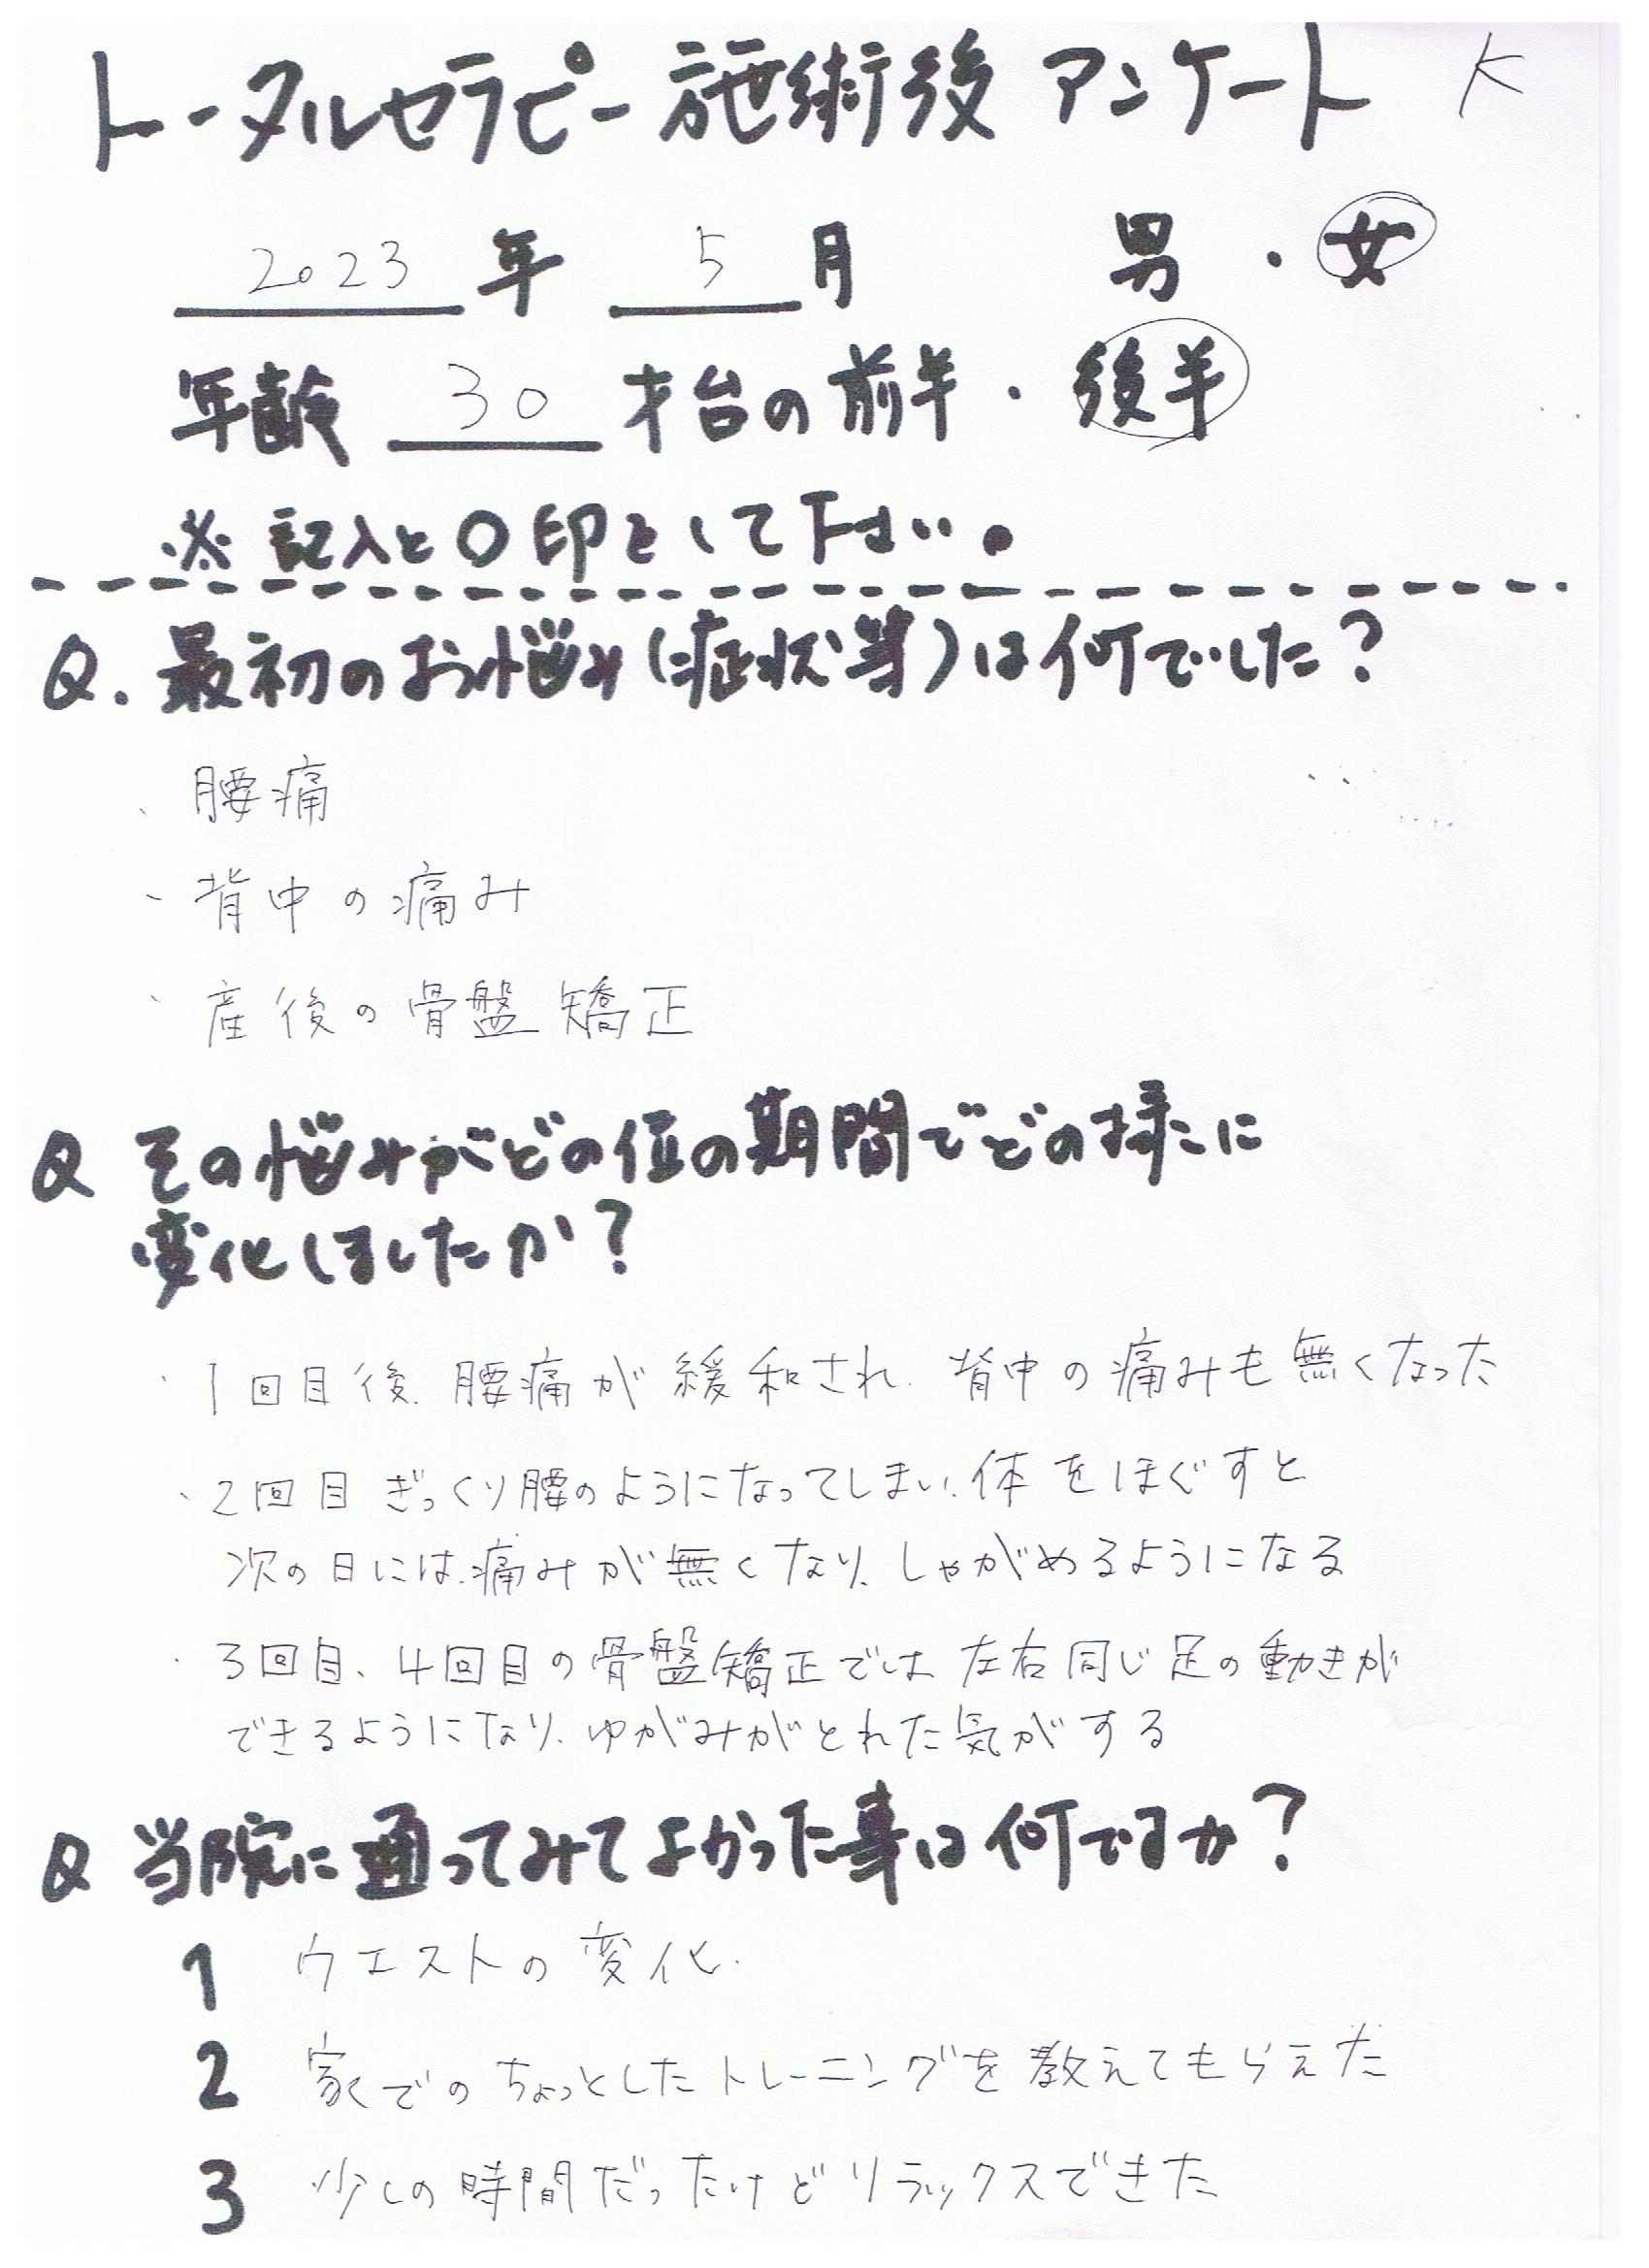 トータルセラピー施術後 アンケート K
2023年 5月 男・女
年齢 30 才台の前半・後半
※ 記入と○印をして下さい。
Q. 最初のお悩み(症状等)は何でした?
・腰痛
・背中の痛み
・産後の骨盤矯正
Q その悩みがどの位の期間でどの様に
変化しましたか?
・1回目後、腰痛が緩和され、背中の痛みも無くなった
・2回目 ぎっくり腰のようになってしまい、体をほぐすと
次の日には、痛みが無くなり、しゃがめるようになる
・3回目、4回目の骨盤矯正では 左右同じ足の動きが
できるようになり、ゆがみがとれた気がする
Q 当院に通ってみてよかった事は何ですか?
1 ウエストの変化.
2 家でのちょっとしたトレーニングを教えてもらえた
3 少しの時間だったけどリラックスできた